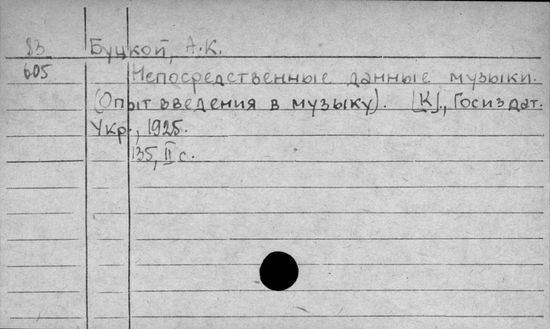 83 Буцкой, А.К.
605 Непосредственные данные музыки.
(Опыт введения в музыку). [К]., Госиздат.
Укр., 1925.
135, II с.